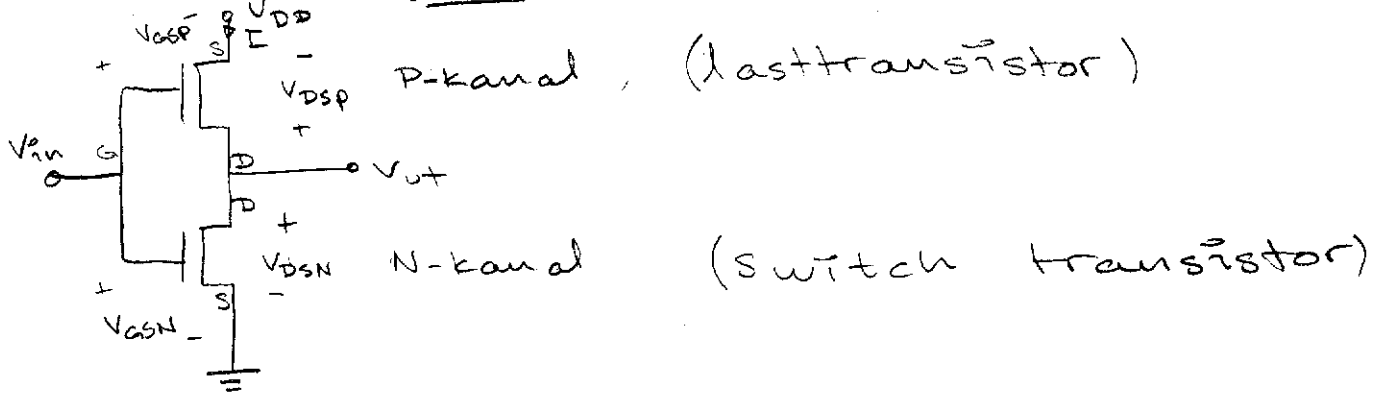 VDD
VGSP -
I
S
+
-
P-kanal, (lasttransistor)
VDSP
+
Vin
G
D
Vut
D
+
VDSN
N-kanal (switch transistor)
+
S
-
VGSN -